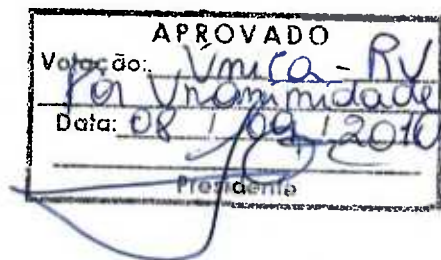 APROVADO
Votação: Única - RV
Por Unanimidade
Data: 08 / 09 / 2010
Presidente